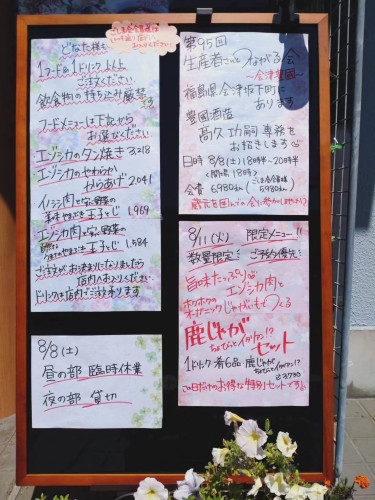 どなた様も
1フード&1ドリンク以上
ご注文ください
飲食物の持ち込み厳禁です
フードメニューは下記から
お選びください
エゾシカのタン焼き 3,218
エゾシカのやわらか
からあげ 2,041
イノシシ肉と
玉子とじ 1,969
エゾシカ肉と
玉子とじ 1,584
ご注文がお決まりになりましたら
店内へお入りください
ドリンクは店内でご注文承ります
8/8(土)
昼の部 臨時休業
夜の部 貸切
第95回
生産者さんとつながる会
~会津豊國~
福島県会津坂下町に
あります
豊國酒造
髙久功嗣専務を
お招きします
日時 8/8(土)18時半~20時半
(開場18時)
会費 6980
(5980
蔵元を囲んでの会に参加しませんか?
8/11(火) 限定メニュー!!
数量限定 ご予約優先
旨味たっぷり
エゾシカ肉と
ホクホクの
オーガニックじゃがいもでつくる
鹿じゃが
ちょびっとイカケン!?
セット
1ドリンク+肴6品+鹿じゃが
ちょびっとイカケン!?
3,730
この日だけのお得な特別セットです